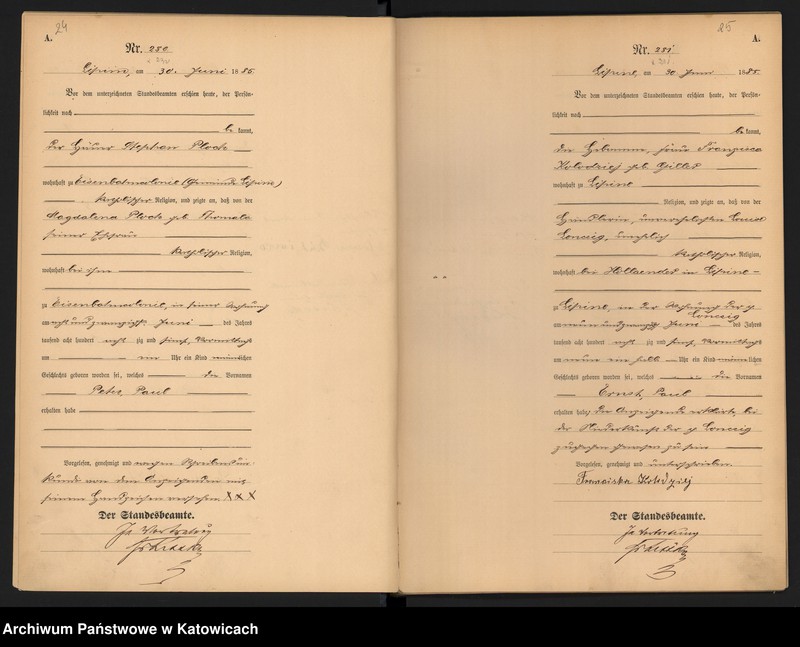 24
A.
Nr. 250
Lipine, am 30. Juni 1885.
Vor dem unterzeichneten Standesbeamten erschien heute, der Persön-
lichkeit nach
be kannt,
der Häuer Stephan Ploch
wohnhaft zu Eisenbahncolonie (Gemeinde Lipine)
katholischer Religion, und zeigte an, daß von der
Magdalena Ploch geb.
seiner Ehefrau
katholischer Religion,
wohnhaft bei ihm
zu Eisenbahncolonie, in seiner Wohnung
am acht und zwanzigsten Juni des Jahres
tausend acht hundert acht zig und fünf, Vormittags
um ein Uhr ein Kind männlichen
Geschlechts geboren worden sei, welches die Vornamen
Peter, Paul
erhalten habe
Vorgelesen, genehmigt und wegen Schreibensun-
kunde von dem Anzeigenden mit
seinem Handzeichen versehen XXX
Der Standesbeamte.
In Vertretung
25
A.
Nr. 251
Lipine, am 30. Juni 1885.
Vor dem unterzeichneten Standesbeamten erschien heute, der Persön-
lichkeit nach
be kannt,
die Hebamme, Frau Franziska
Kolodziej geb. Giller
wohnhaft zu Lipine
Religion, und zeigte an, daß von der
Händlerin, unverehelichten
ehelich
katholischer Religion,
wohnhaft bei Hollaender in Lipine
zu Lipine, in der Wohnung der p
am neun und zwanzigsten Juni des Jahres
tausend acht hundert acht zig und fünf, Vormittags
um neun ein halb Uhr ein Kind männlichen
Geschlechts geboren worden sei, welches die Vornamen
Ernst, Paul
erhalten habe; die Anzeigende erklärte, bei
der Niederkunft der p
zugegen gewesen zu sein
Vorgelesen, genehmigt und unterschrieben.
Franciska
Der Standesbeamte.
In Vertretung
Archiwum Państwowe w Katowicach